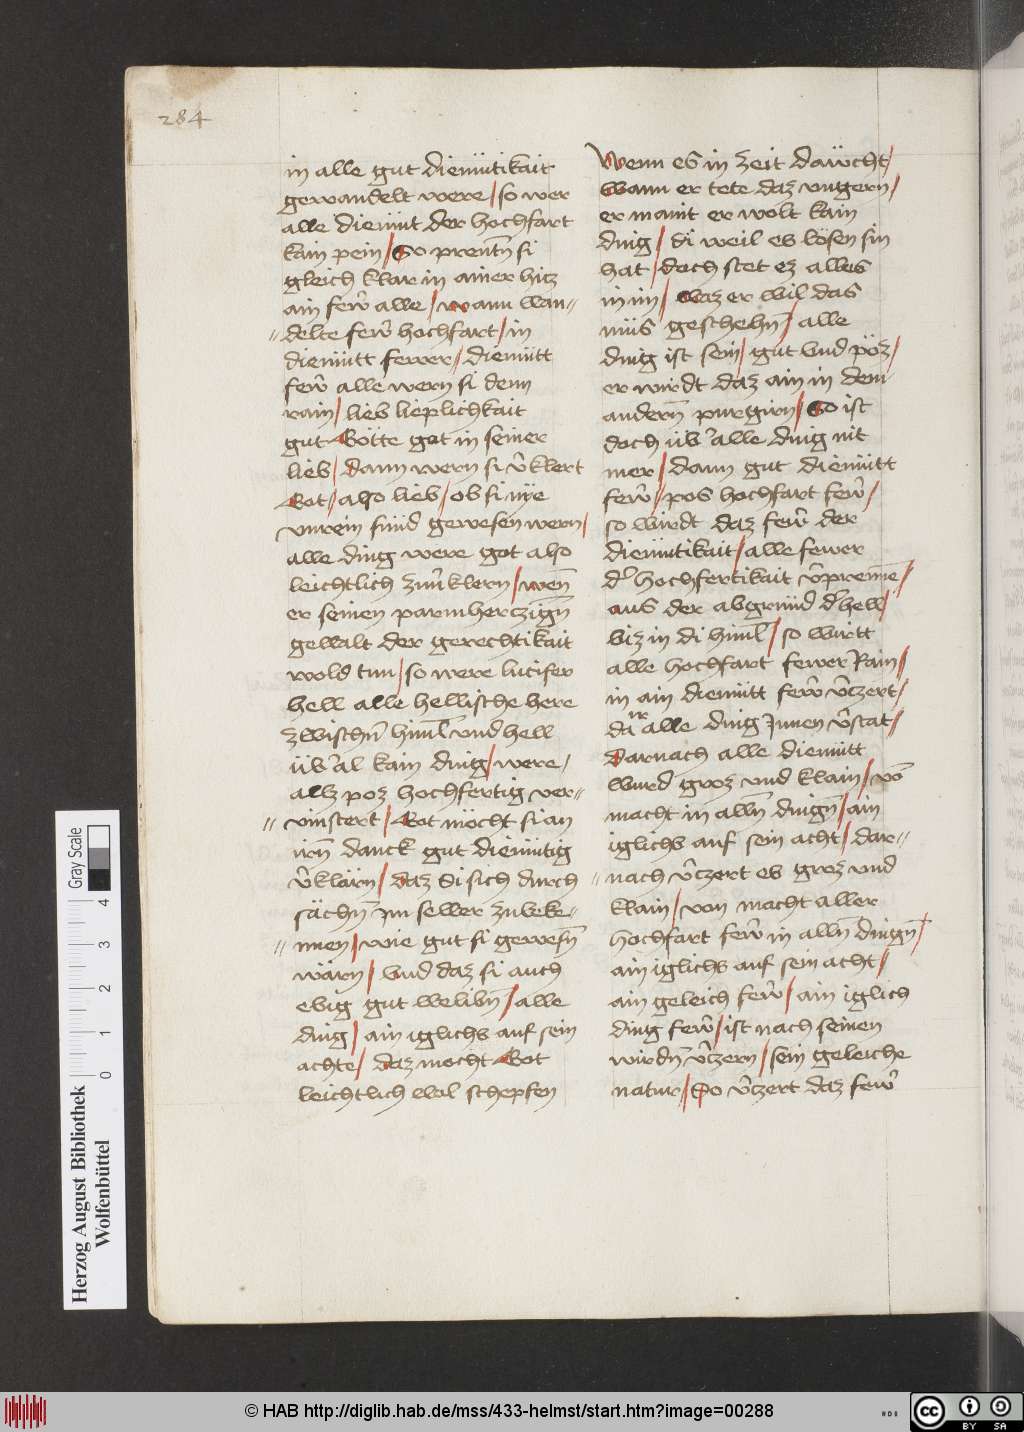 284
in alle gut diemütikait
gewandelt were / so wer
alle diemüt der hochfart
kain pein / So prentn̄ si
gleich klar in ainer hitz
ain fewr̄ alle / wann wan=
=delte fewr̄ hochfart / in
diemütt fewer / diemütt
fewr̄ alle wern si denn
rain / lieb lieplichkait
gut Götte got in seiner
lieb / dann wern si v̄klert
Got / also lieb / ob si nÿe
vnrein sünd gewesen wern /
alle ding were got also
leichtlich zuuͤrklern / wen̄
er seinen parmherczign̄
gewalt der gerechtikait
wold tun / so were lucifer
hell alle hellische here
zwischn̄ himl̄ vnd hell
üb᾽al kain ding / were /
allz poz hochfertig ver=
=vinstert / Got möcht si an
irn̄ danck gut diemütig
v̄klärn / daz Si sich durch
sächn̄ Im selber zubeke=
=nnen / wie gut si gewesn̄
wärn / Vnd daz si auch
ebig gut welibn̄ / alle
ding / ain iglichs auf sein
achte / daz mocht Got
leichtlich ewl schepfen
Wenn es in zeit dawcht /
Wann er tete daz vngern /
er maint er wolt kain
ding / di weil es lösen sin
hat / doch stet ez alles
in im / Waz er wil das
müs geschehn̄ / alle
ding ist sein / gut Vnd pöz /
er wirdt daz ain in dem
andern̄ purgirn / So ist
doch üb᾽alle ding nit
mer / dann gut diemütt
fewr̄ / pos hochfart fewr̄ /
so wirdt daz fewr̄ der
diemütikait / alle fewer
d᾽ hochfertikait v̄prenn̄e /
aus der abgrund d᾽hell /
biz in di himl̄ / so wirtt
alle hochfart fewer Rain /
in ain diemütt fewr̄ v̄czert /
da ir alle ding Innen v̄stat /
Darnach alle diemütt
wurd groz vnd klain / vō
macht in alln̄ dingn̄ / ain
iglichs auf sein acht / dar=
=nach v̄czert es groz vnd
klain / von macht aller
hochfart fewr̄ in alln̄ dingn̄ /
ain iglichs auf sein acht /
ain geleich fewr̄ / ain iglich
ding fewr̄ / ist nach seinen
wirdn̄ v̄czern / sein geleiche
natur / So v̄czert daz fewr̄
Herzog August Bibliothek
Wolfenbüttel
Gray Scale
0 1 2 3 4
© HAB http://diglib.hab.de/mss/433-helmst/start.htm?image=00288
cc BY SA